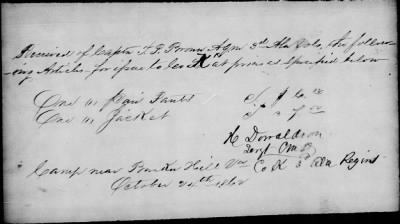 Received of Capt T. F. Brown AQM 3rd Ala Vols, the follow-
ing Articles for issue to Co K at prices as specified below
One (1) Pair Pants
One (1) Jacket
H Donaldson
Sergt
Camp near Bunker Hill Va Co K 3rd Ala Regimt
October 24th 1862